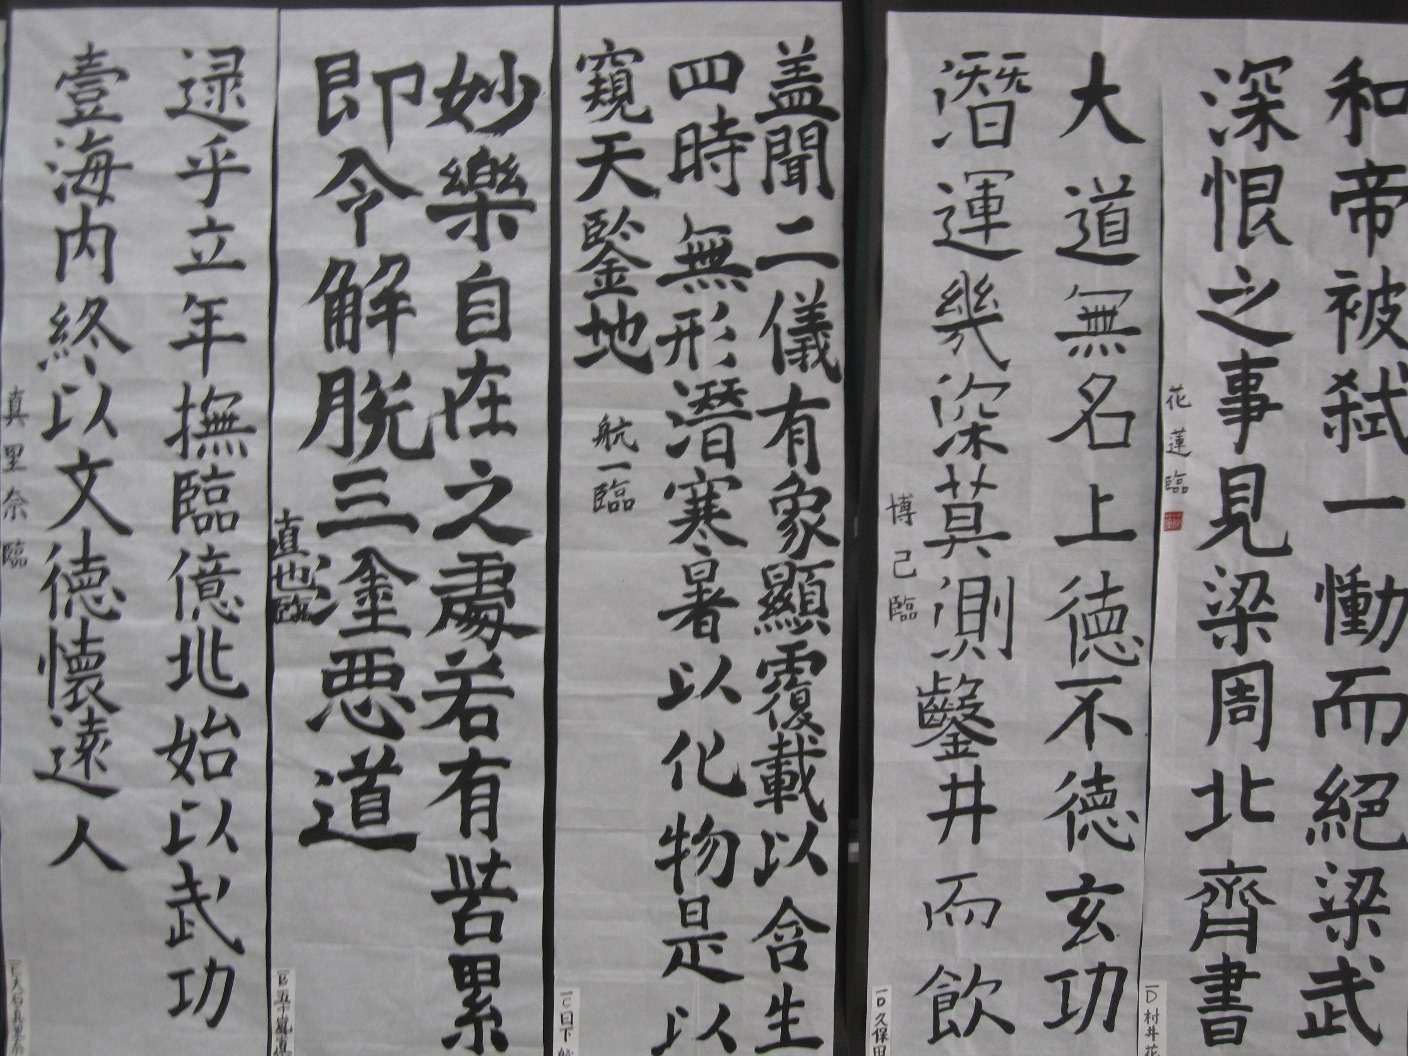 和帝被弑一慟而絕梁武
深恨之事見梁周北齊書
花蓮臨
大道無名上德不德玄功
潛運幾深莫測鑿井而飲
博己臨
蓋聞二儀有象顯覆載以含生
四時無形潛寒暑以化物是以
窺天鑒地
航一臨
妙樂自在之處若有苦累
即令解脱三塗悪道
直也臨
逯乎立年撫臨億兆始以武功
壹海内終以文德懷遠人
真里奈臨
一D 村井花
一D 久保田
一C 日下
一B 五十嵐直